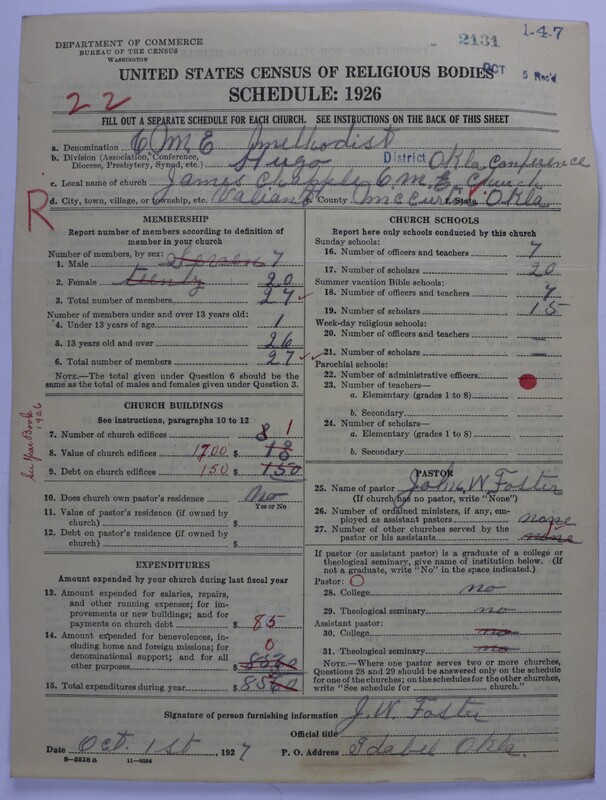 1-4-7
DEPARTMENT OF COMMERCE
BUREAU OF THE CENSUS
WASHINGTON
2131
OCT 5 Rec'd
UNITED STATES CENSUS OF RELIGIOUS BODIES
22
SCHEDULE: 1926
FILL OUT A SEPARATE SCHEDULE FOR EACH CHURCH. SEE INSTRUCTIONS ON THE BACK OF THIS SHEET
a. Denomination C. M. E. methodist
b. Division (Association, Conference, Diocese, Presbytery, Synod, etc.) Hugo District Okla Conference
c. Local name of church James Chapple C. M. E. Church
R
d. City, town, village, or township, etc. Valiant e. County McCurt f. State Okla
MEMBERSHIP
Report number of members according to definition of
member in your church
Number of members, by sex:
1. Male Seven 7
2. Female twenty 20
3. Total number of members 27
Number of members under and over 13 years old:
4. Under 13 years of age 1
5. 13 years old and over 26
6. Total number of members 27
NOTE.—The total given under Question 6 should be the
same as the total of males and females given under Question 3.
CHURCH BUILDINGS
See instructions, paragraphs 10 to 12
7. Number of church edifices 1
8. Value of church edifices 1700 $
9. Debt on church edifices 150 $ 150
See Year Book 1926
10. Does church own pastor's residence No
Yes or No
11. Value of pastor's residence (if owned by
church) $
12. Debt on pastor's residence (if owned by
church) $
EXPENDITURES
Amount expended by your church during last fiscal year
13. Amount expended for salaries, repairs,
and other running expenses; for im-
provements or new buildings; and for
payments on church debt $ 85
14. Amount expended for benevolences,
including home and foreign missions; for
denominational support; and for all
other purposes 0 $
15. Total expenditures during year $ 85
CHURCH SCHOOLS
Report here only schools conducted by this church
Sunday schools:
16. Number of officers and teachers 7
17. Number of scholars 20
Summer vacation Bible schools:
18. Number of officers and teachers 7
19. Number of scholars 15
Week-day religious schools:
20. Number of officers and teachers —
21. Number of scholars —
Parochial schools:
22. Number of administrative officers
23. Number of teachers—
a. Elementary (grades 1 to 8)
b. Secondary
24. Number of scholars—
a. Elementary (grades 1 to 8)
b. Secondary
PASTOR
25. Name of pastor John W Foster
(If church has no pastor, write "None")
26. Number of ordained ministers, if any, em-
ployed as assistant pastors none
27. Number of other churches served by the
pastor or his assistants none
If pastor (or assistant pastor) is a graduate of a college or
theological seminary, give name of institution below. (If
not a graduate, write "No" in the space indicated.)
Pastor: O
28. College no
29. Theological seminary no
Assistant pastor:
30. College no
31. Theological seminary no
NOTE.—Where one pastor serves two or more churches,
Questions 28 and 29 should be answered only on the schedule
for one of the churches; on the schedules for the other churches,
write "See schedule for church."
Signature of person furnishing information J. W. Foster
Official title
Date Oct. 1st, 1927 P. O. Address Idabel Okla.
8—5518 a 11—9054